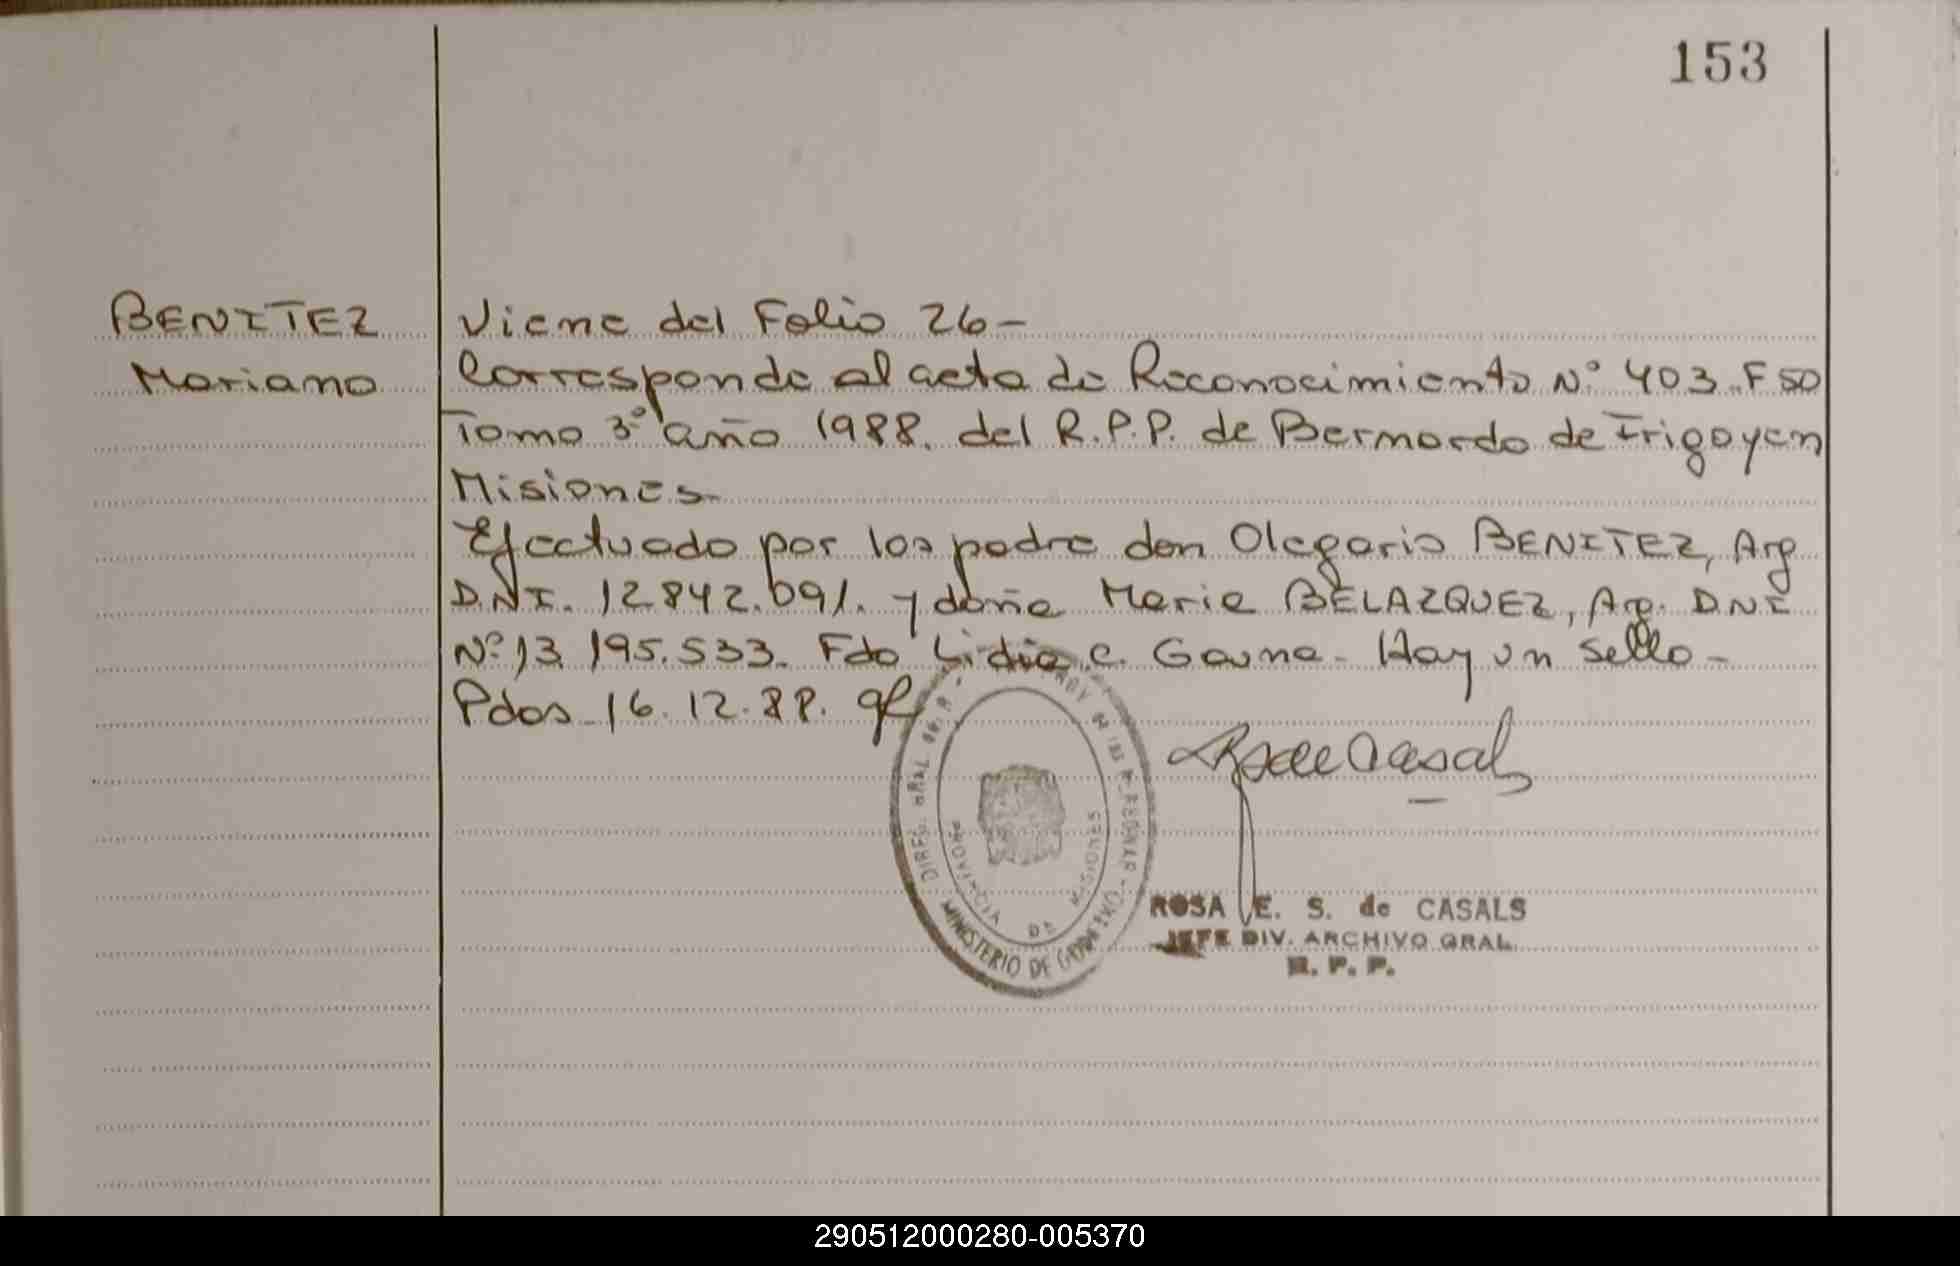 153
BENITEZ
Mariano
Viene del Folio 26-
Corresponde al acta de Reconocimiento Nº 403. F 50
Tomo 3º año 1988. del R.P.P. de Bernardo de Irigoyen
Misiones-
Efectuado por los padre don Olegario BENITEZ, Arg
D.N.I. 12.842.091. y doña Maria BELAZQUEZ, Arg. D.N.I
Nº 13.195.533. Fdo Lidia C. Gauna- Hay un sello-
Pdos 16.12.88.
Rosa E de Casals
DIREC. GRAL. DEL R. PROV. DE LAS PERSONAS
PROVINCIA DE MISIONES
MINISTERIO DE GOBIERNO
ROSA E. S. de CASALS
JEFE DIV. ARCHIVO GRAL.
R. P. P.
290512000280-005370